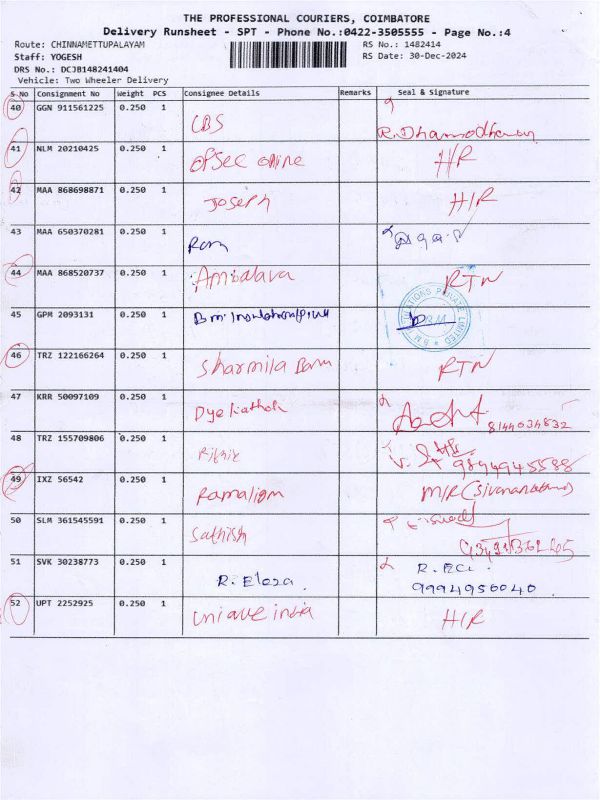 THE PROFESSIONAL COURIERS, COIMBATORE
Delivery Runsheet - SPT - Phone No.:0422-3505555 - Page No.:4
Route: CHINNAMETTUPALAYAM RS No.: 1482414
Staff: YOGESH RS Date: 30-Dec-2024
DRS No.: DCJB148241404
Vehicle: Two Wheeler Delivery
S.No Consignment No Weight PCS Consignee Details Remarks Seal & Signature
40 GGN 911561225 0.250 1 CBS R. Dhamodharan
41 NLM 20210425 0.250 1 Ofsec online H/R
42 MAA 868698871 0.250 1 Joseph H/R
43 MAA 650370281 0.250 1 Ram
44 MAA 868520737 0.250 1 Ambalava RTN
45 GPM 2093131 0.250 1 B.M. PRIVATE LIMITED B.M.
46 TRZ 122166264 0.250 1 Sharmila Banu RTN
47 KRR 50097109 0.250 1 8144034832
48 TRZ 155709806 0.250 1 9894945588
49 IXZ 56542 0.250 1 Ramaligm M/R
50 SLM 361545591 0.250 1 Sathish
51 SVK 30238773 0.250 1 R. Eleza. R.
9994956040.
52 UPT 2252925 0.250 1 Unique india H/R